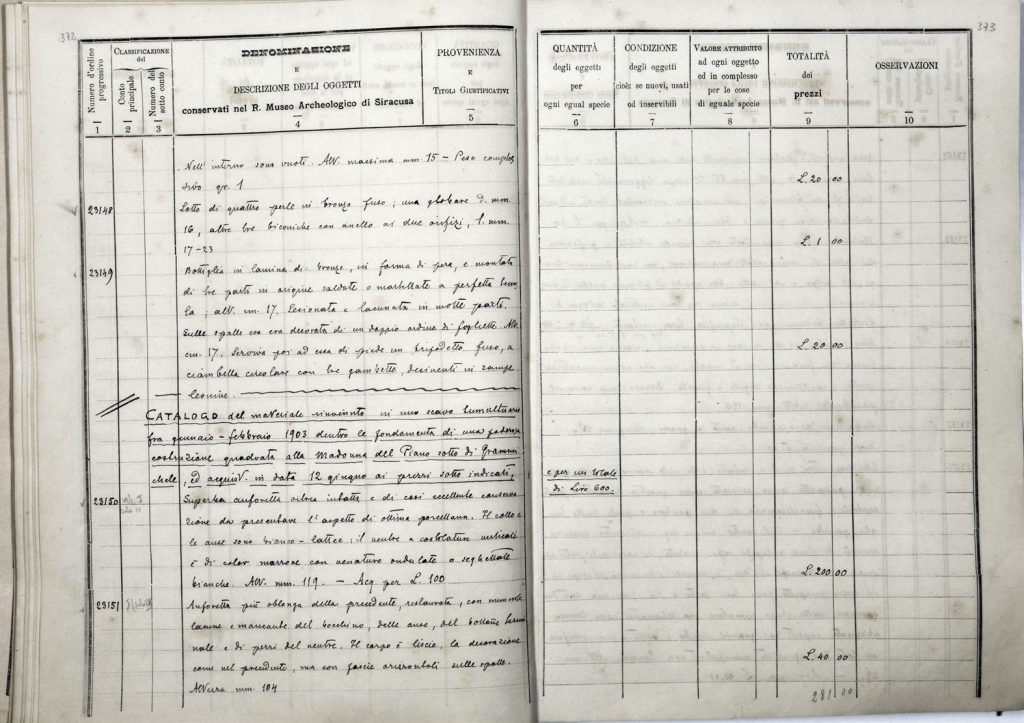 372
Numero d'ordine progressivo
CLASSIFICAZIONE del
Conto principale
Numero del sotto conto
DENOMINAZIONE
E
DESCRIZIONE DEGLI OGGETTI
conservati nel R. Museo Archeologico di Siracusa
PROVENIENZA
E
TITOLI GIUSTIFICATIVI
1 2 3 4 5
Nell'interno sono vuoti. Alt. massima mm. 15 – Peso comples
sivo gr. 1
23148 Lotto di quattro perle in bronzo fuso; una globare d. mm.
16, altre tre biconiche con anello ai due orifizi, l. mm.
17-23
23149 Bottiglia in lamina di bronzo, in forma di pera, e montata
di tre parti in origine saldate o martellate a perfetta
alt. cm. 17. Lesionata e lacunata in molte parti.
Sulle spalle era ora decorata di un doppio ordine di fogliette. Alt.
cm. 17. Serviva poi ad essa di piede un fuso, a
ciambella circolare con tre gambette, desinenti in zampe
leonine.
CATALOGO del materiale rinvenuto in uno scavo tumultuario
fra gennaio - febbraio 1903 dentro le fondamenta di una poderosa
costruzione quadrata alla Madonna del Piano sotto di Grammi
chele, ed acquist. in data 12 giugno ai prezzi sotto indicati,
23150 Superba anforetta vitrea intatta e di così eccellente conserva
zione da presentare l'aspetto di ottima porcellana. Il collo e
le anse sono bianco-lattee; il ventre a costolature verticali
è di color marrone con venature ondulate o seghettate
bianche. Alt. mm. 119. – Acq. per L. 100
23151 Anforetta più oblonga della precedente, restaurata, con
e mancante del bocchino, delle anse, del bottone termi
nale e di pezzi del ventre. Il corpo è liscio, la decorazione
come nel precedente, ma con fascie sulle spalle.
Altezza mm. 104
373
QUANTITÀ
degli oggetti
per
ogni egual specie
CONDIZIONE
degli oggetti
cioè: se nuovi, usati
od inservibili
VALORE ATTRIBUITO
ad ogni oggetto
ed in complesso
per le cose
di eguale specie
TOTALITÀ
dei
prezzi
OSSERVAZIONI
6 7 8 9 10
L. 20 00
L. 1 00
L. 20 00
e per un totale
di Lire 600.
L. 200 00
L. 40 00
281 00